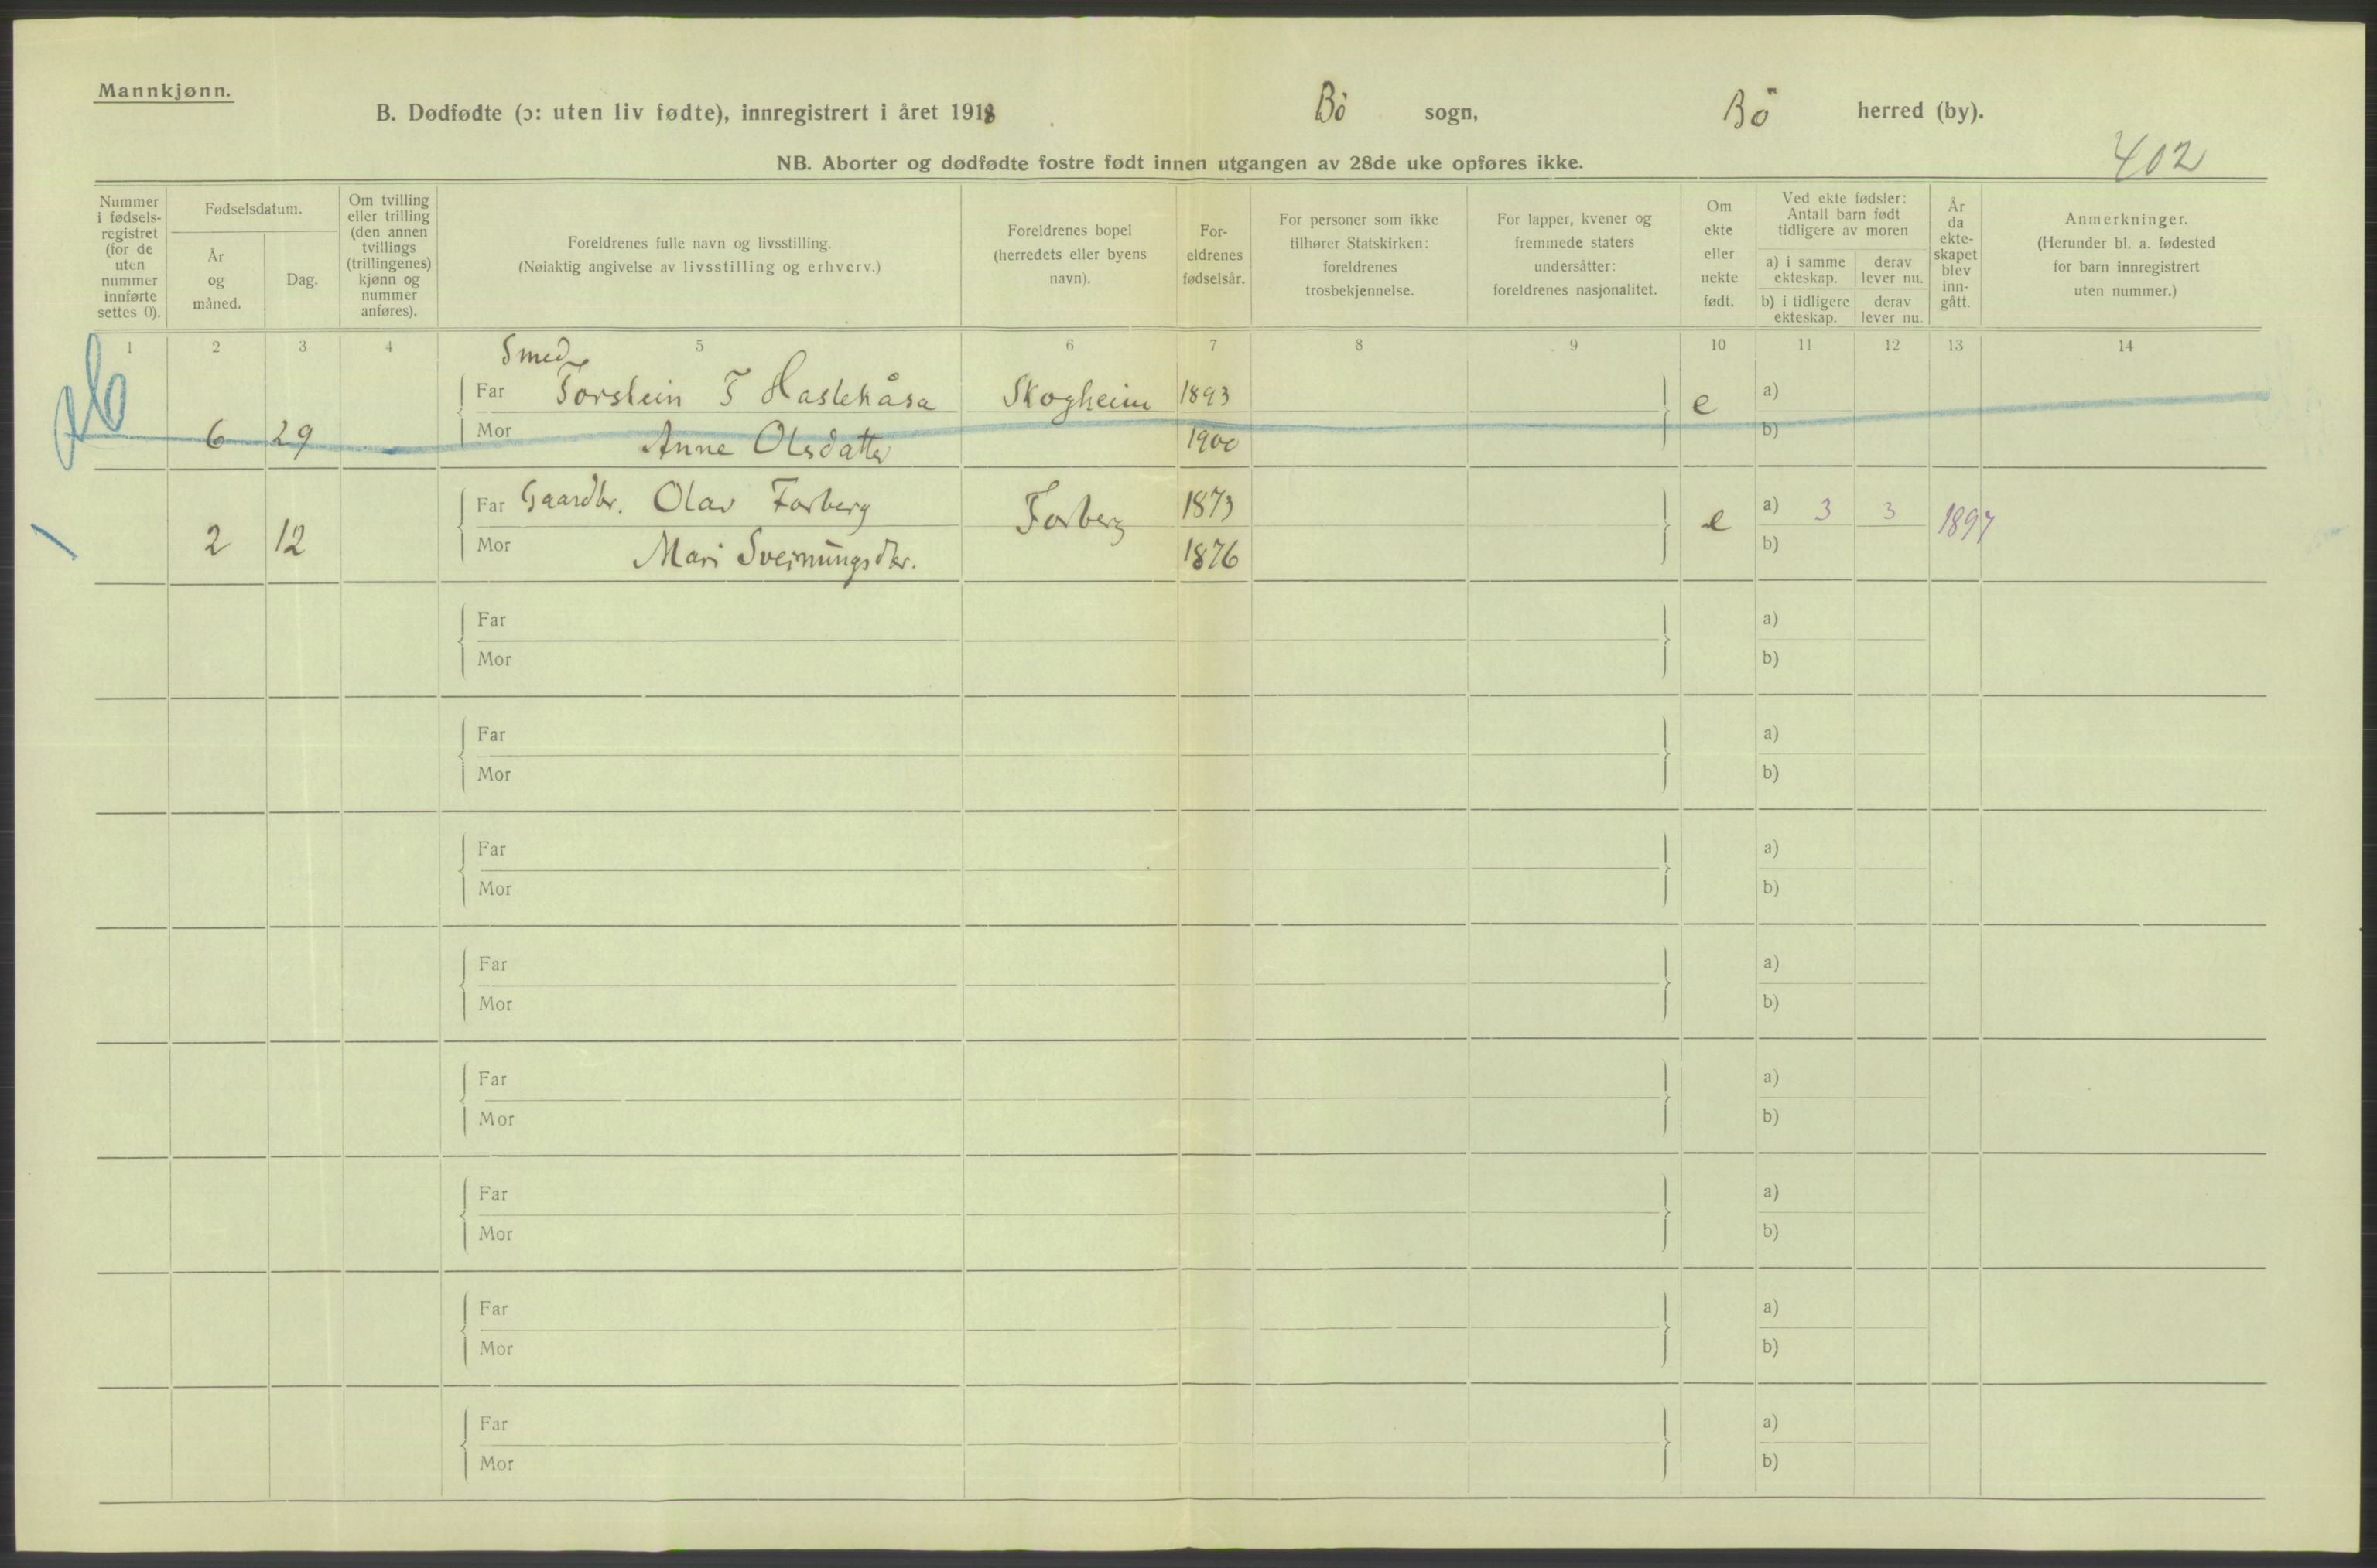 Mannkjønn.
B. Dødfødte (ɔ: uten liv fødte), innregistrert i året 1918 Bö sogn, Bö herred (by).
402
NB. Aborter og dødfødte fostre født innen utgangen av 28de uke opføres ikke.
Nummer
i fødsels-
registret
(for de
uten
nummer
innførte
settes 0).
Fødselsdatum.
År
og
måned.
Dag.
Om tvilling
eller trilling
(den annen
tvillings
(trillingenes)
kjønn og
nummer
anføres).
Foreldrenes fulle navn og livsstilling.
(Nøiaktig angivelse av livsstilling og erhverv.)
Foreldrenes bopel
(herredets eller byens
navn).
For-
eldrenes
fødselsår.
For personer som ikke
tilhører Statskirken:
foreldrenes
trosbekjennelse.
For lapper, kvener og
fremmede staters
undersåtter:
foreldrenes nasjonalitet.
Om
ekte
eller
uekte
født.
Ved ekte fødsler:
Antall barn født
tidligere av moren
a) i samme
ekteskap.
derav
lever nu.
b) i tidligere
ekteskap.
derav
lever nu.
År
da
ekte-
skapet
blev
inn-
gått.
Anmerkninger.
(Herunder bl. a. fødested
for barn innregistrert
uten nummer.)
1 2 3 4 5 6 7 8 9 10 11 12 13 14
Smed
Far Torstein T Haslekåsa Skogheim 1893 e a)
6 29 Mor Anne Olsdatter 1900 b)
Far Gaardbr. Olav Forberg Forberg 1873 e a) 3 3 1897
2 12 Mor Mari Sveinungsdtr. 1876 b)
Far a)
Mor b)
Far a)
Mor b)
Far a)
Mor b)
Far a)
Mor b)
Far a)
Mor b)
Far a)
Mor b)
Far a)
Mor b)
Far a)
Mor b)